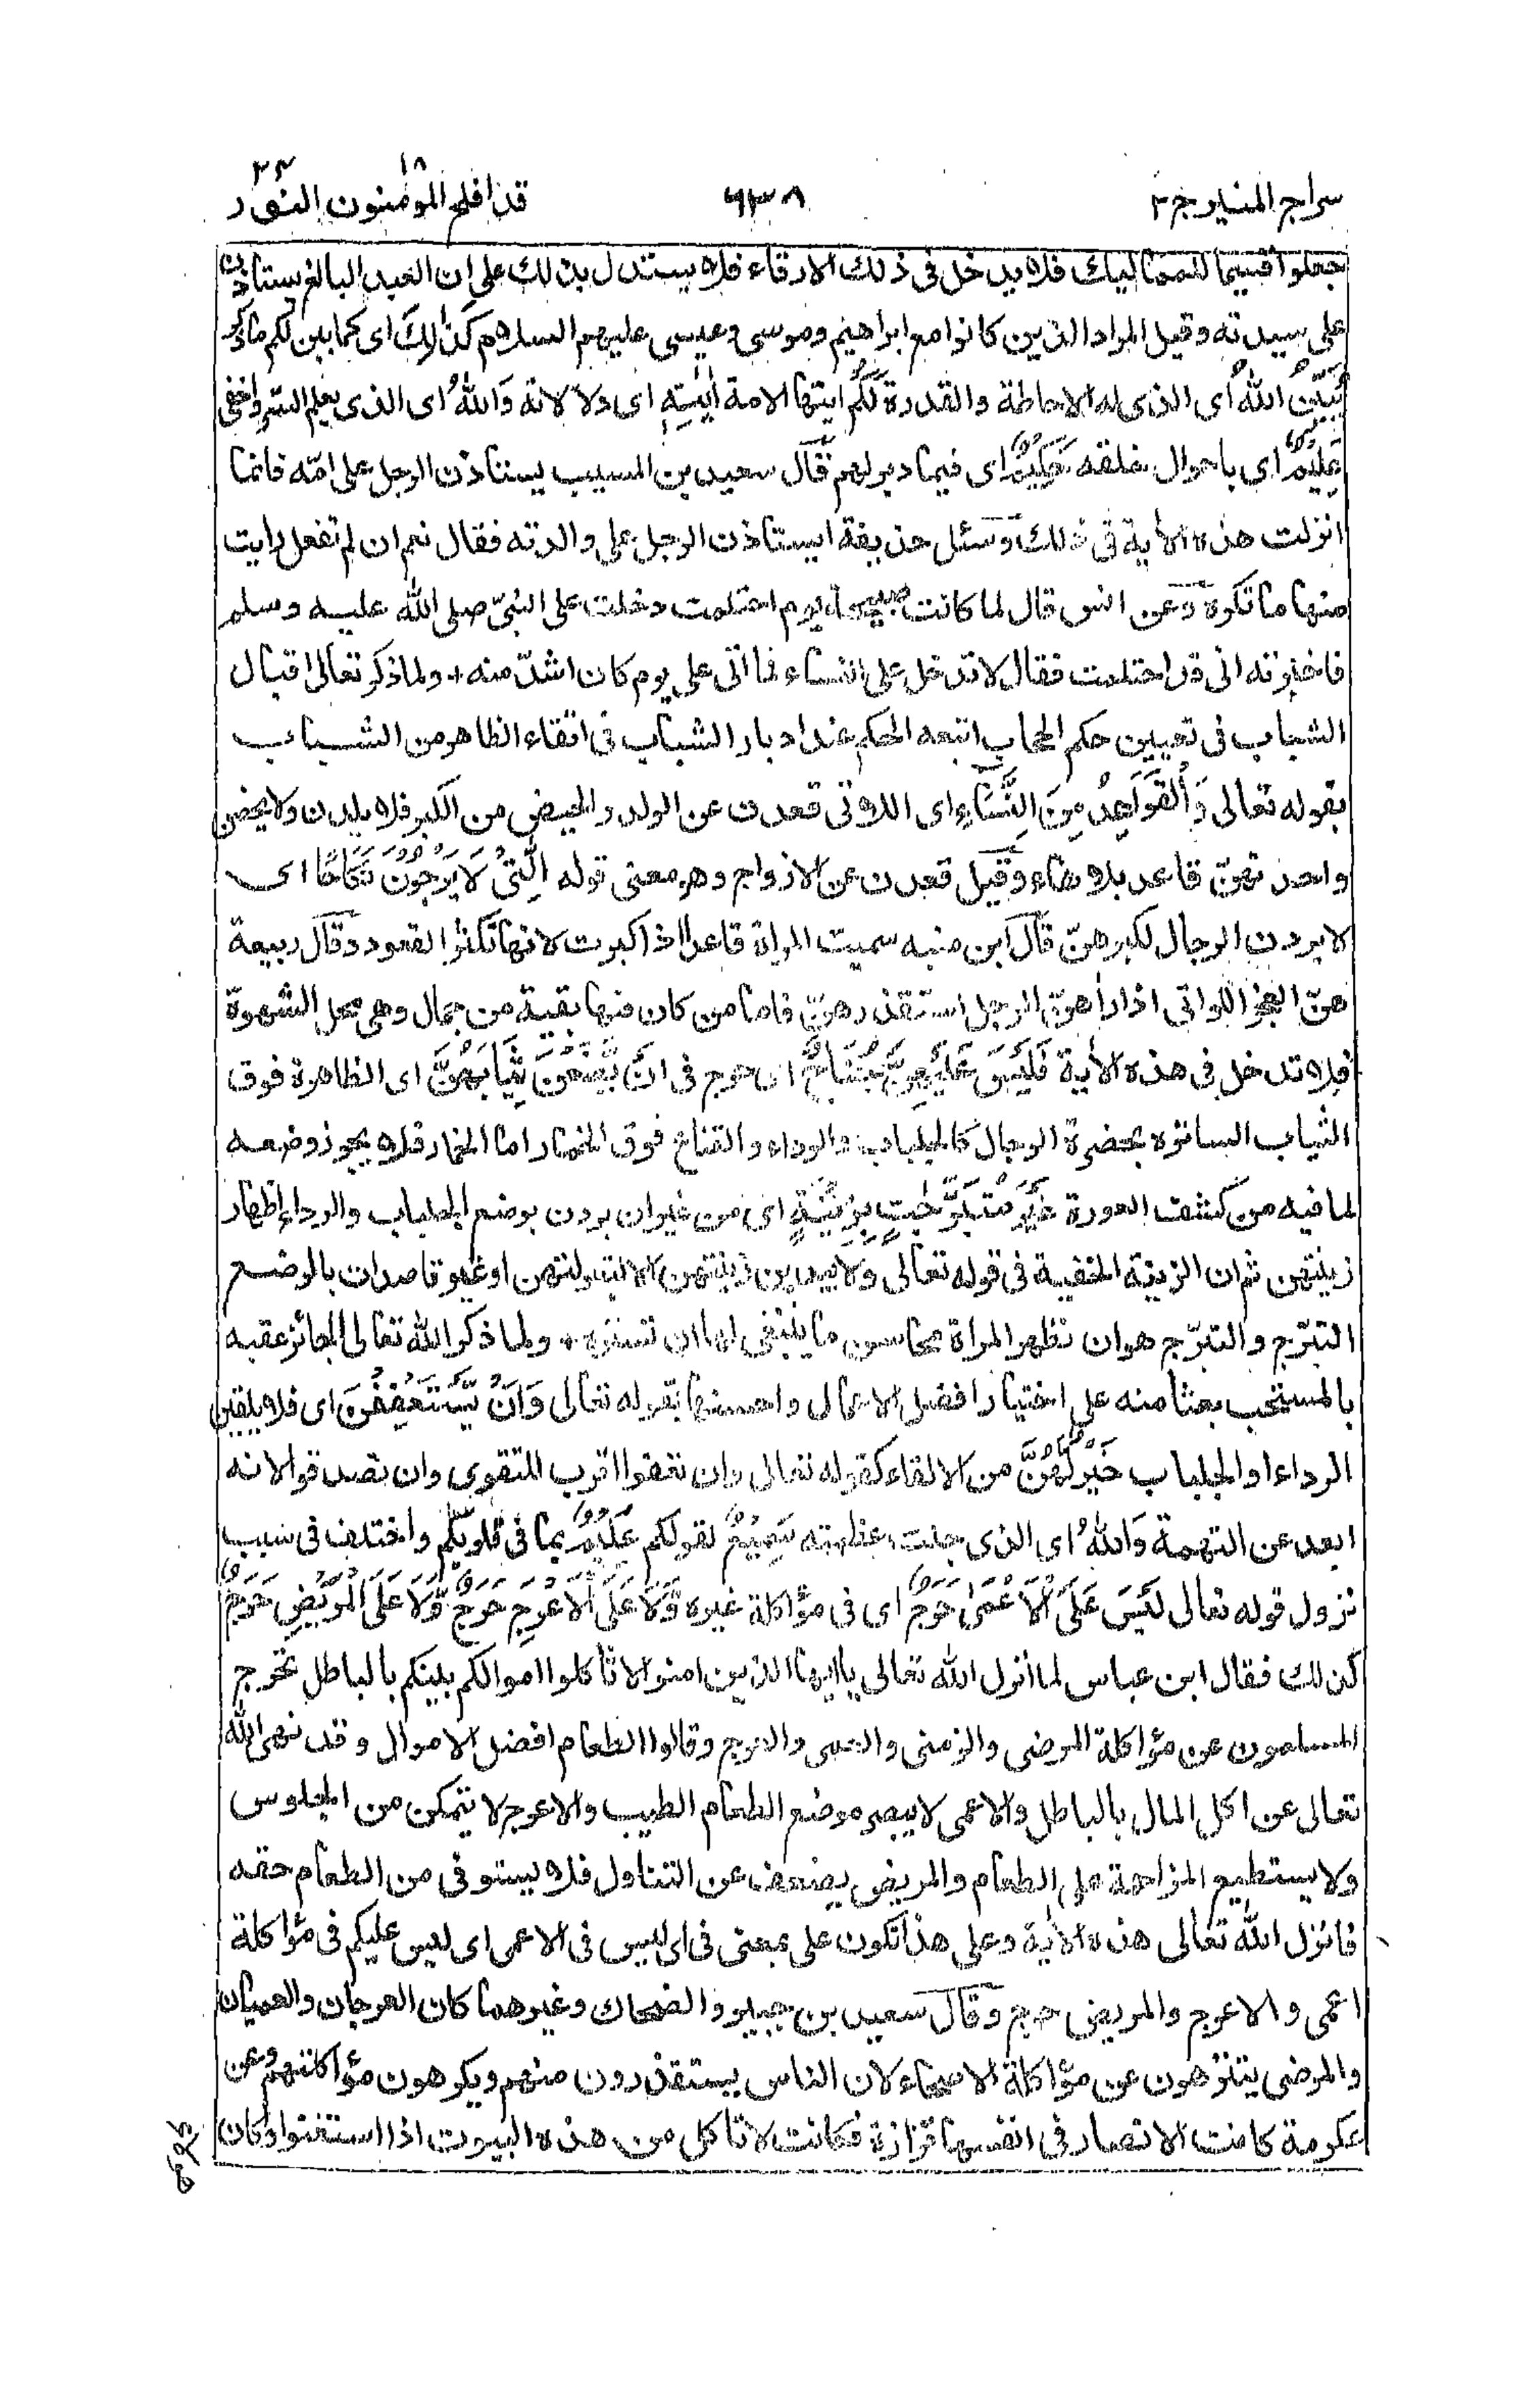 سراج المنير ج ٢ ٦٣٨ قد افلح المؤمنون ١٨ النور ٢٤
جعلوا قسيما للمماليك فلا يدخل في ذلك الارقاء فلا يستدل بذلك على ان العبد البالغ يستاذن
على سيدته وقيل المراد الذين كانوا مع ابراهيم وموسى وعيسى عليهم السلام كَذٰلِكَ اى كما بين لكم ما ذكر
يُبَيِّنُ اللّٰهُ اى الذى له الاحاطة والقدرة لَكُمْ ايتها الامة اٰيٰتِهٖ اى دلالاته وَاللّٰهُ اى الذى يعلم السر واخفى
عَلِيْمٌ اى باحوال خلقه حَكِيْمٌ اى فيما دبر لهم قال سعيد بن المسيب يستاذن الرجل على امّه فانما
انزلت هذه الاٰية فى ذلك وسئل حذيفة ايستاذن الرجل على والدته فقال نعم ان لم تفعل رايت
منها ما تكره وعن انس قال لما كانت صبيحة يوم احتلمت دخلت على النبىّ صلى الله عليه وسلم
فاخبرته انى قد احتلمت فقال لا تدخل على النساء فما اتى على يوم كان اشدّ منه + ولما ذكر تعالى اقبال
الشباب فى تعيين حكم الحجاب اتبعه الحكم عند ادبار الشباب فى اتقاء الظاهر من الشباب
بقوله تعالى وَالْقَوَاعِدُ مِنَ النِّسَاءِ اى اللاتى قعدن عن الولد والحيض من الكبر فلا يلدن ولا يحضن
واحدتهنّ قاعد بلا هاء وقيل قعدن عن الازواج وهو معنى قوله الّٰتِىْ لَا يَرْجُوْنَ نِكَاحًا اى
لا يردن الرجال لكبرهنّ قال ابن منبه سميت المراة قاعدا اذا كبرت لانها تكثر القعود وقال ربيعة
هنّ العجز اللواتى اذا راٰهنّ الرجل استقذرهنّ فاما من كان فيها بقية من جمال وهى محل الشهوة
فلا تدخل فى هذه الاٰية فَلَيْسَ عَلَيْهِنَّ جُنَاحٌ اى حرج فى اَنْ يَّضَعْنَ ثِيَابَهُنَّ اى الظاهرة فوق
الثياب الساترة بحضرة الرجال كالجلباب والرداء والقناع فوق الخمار اما الخمار فلا يجوز وضعه
لما فيه من كشف العورة غَيْرَ مُتَبَرِّجٰتٍ بِزِيْنَةٍ اى من غير ان يردن بوضع الجلباب والرداء اظهار
زينتهن ثم ان الزينة الخفية فى قوله تعالى ولا يبدين زينتهن الا لبعولتهن او غير قاصدات بالوضع
التبرّج والتبرّج هو ان تظهر المراة محاسن ما ينبغى لها ان تستره + ولما ذكر الله تعالى الجائز عقبه
بالمستحب بعثا منه على اختيار افضل الاعمال واحسنها بقوله تعالى وَاَنْ يَّسْتَعْفِفْنَ اى فلا يلقين
الرداء او الجلباب خَيْرٌ لَّهُنَّ من الالقاء كقوله تعالى وان تعفوا اقرب للتقوى وان تصدقوا لانه
ابعد عن التهمة وَاللّٰهُ اى الذى جلت عظمته سَمِيْعٌ لقولكم عَلِيْمٌ بما فى قلوبكم واختلف فى سبب
نزول قوله تعالى لَيْسَ عَلَى الْاَعْمٰى حَرَجٌ اى فى مؤاكلة غيره وَّلَا عَلَى الْاَعْرَجِ حَرَجٌ وَّلَا عَلَى الْمَرِيْضِ حَرَجٌ
كذلك فقال ابن عباس لما أنزل الله تعالى يا ايها الذين امنوا لا تاكلوا اموالكم بينكم بالباطل تحرج
المسلمون عن مؤاكلة المرضى والزمنى والعمى والعرج وقالوا الطعام افضل الاموال وقد نهى الله
تعالى عن اكل المال بالباطل والاعمى لا يبصر موضع الطعام الطيب والاعرج لا يتمكن من الجلوس
ولا يستطيع المزاحمة على الطعام والمريض يضعف عن التناول فلا يستوفى من الطعام حقه
فانزل الله تعالى هذه الاٰية وعلى هذا تكون على بمعنى فى اى ليس فى الاعمى اى ليس عليكم فى مؤاكلة
اعمى والاعرج والمريض حرج وقال سعيد بن جبير والضحاك وغيرهما كان العرجان والعميان
والمرضى يتنزهون عن مؤاكلة الاصحاء لان الناس يستقذرون منهم ويكرهون مؤاكلتهم وعن
عكرمة كانت الانصار فى انفسها قزازة فكانت لا تاكل من هذه البيوت اذا استغنوا وكان